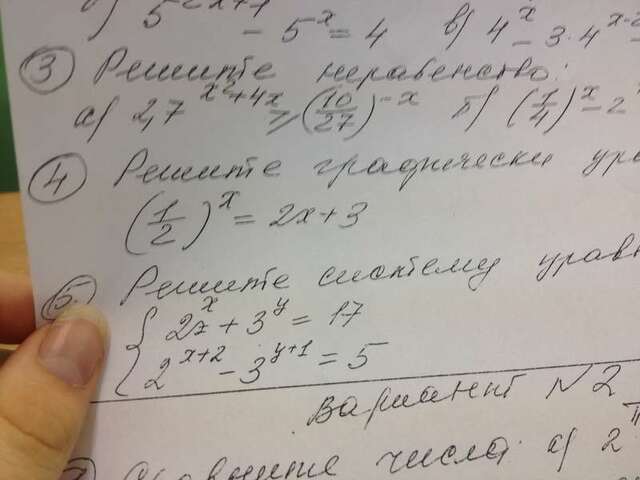 5^(2x+1) - 5^x = 4 в) 4^x - 3·4^(x-2)
③ Решите неравенство:
а) 2,7^(x²+4x) ≥ (10/27)^(-x) б) (1/4)^x - 2
④ Решите графически
(1/2)^x = 2x+3
⑤ Решите систему
{ 2^x + 3^y = 17
2^(x+2) - 3^(y+1) = 5
Вариант №2
числа: а) 2